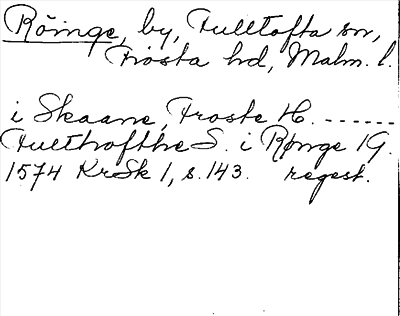 Röinge, by, Fulltofta sn,
Frosta hd, Malm. l.
i Skaane, Froste H. ------
Fulthofthe S. i Rønge 1 G.
1574 KrSk 1, s. 143. regest.